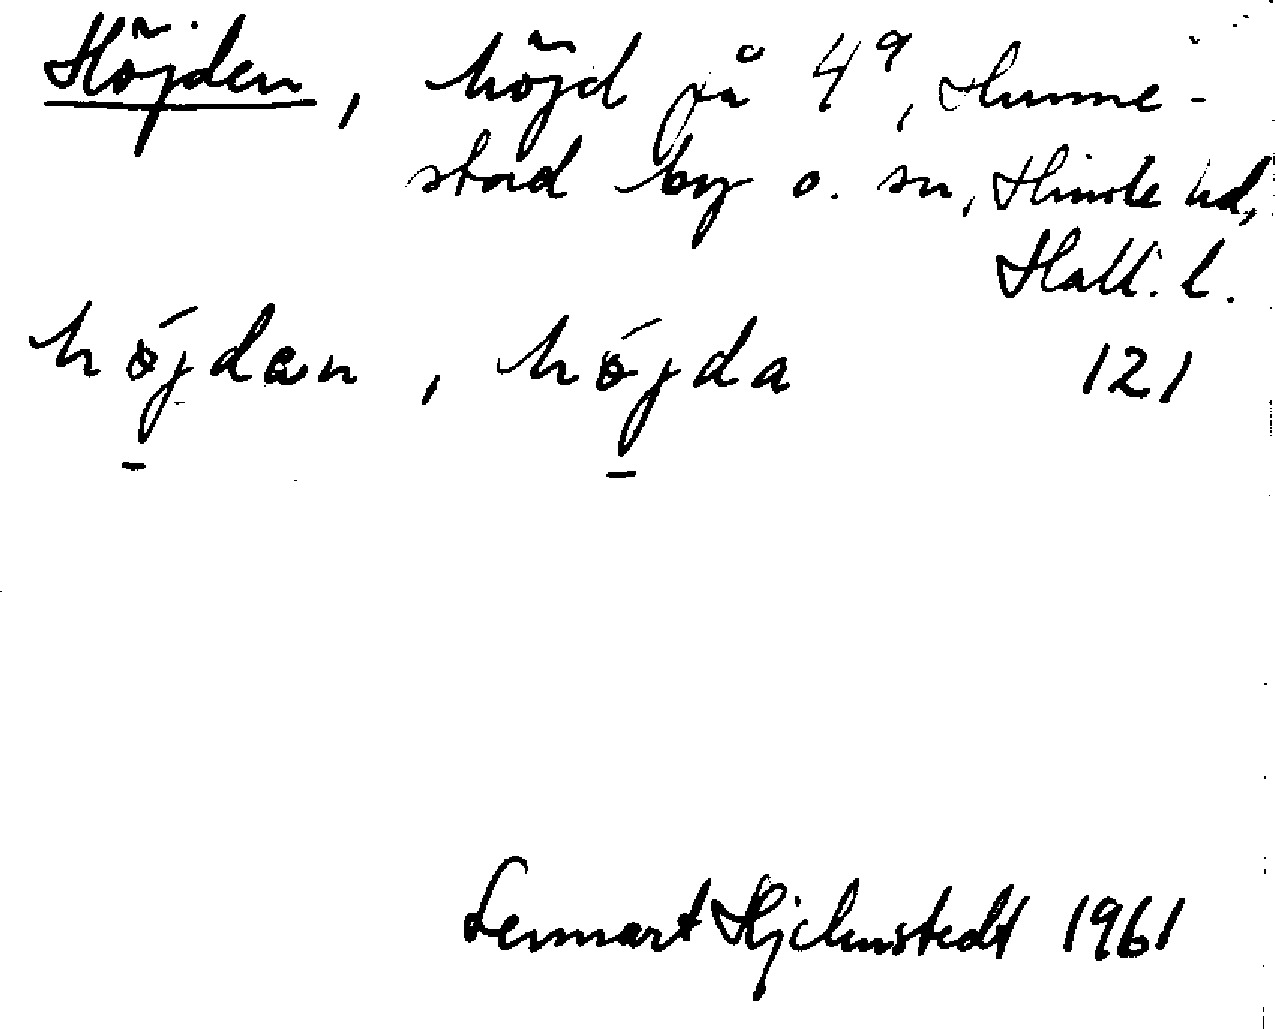 Höjden, höjd på 4ª, Hunne-
stad by o. sn, Himle hd,
Hall. l.
höjdan, höjda 121
Lennart Hjelmstedt 1961